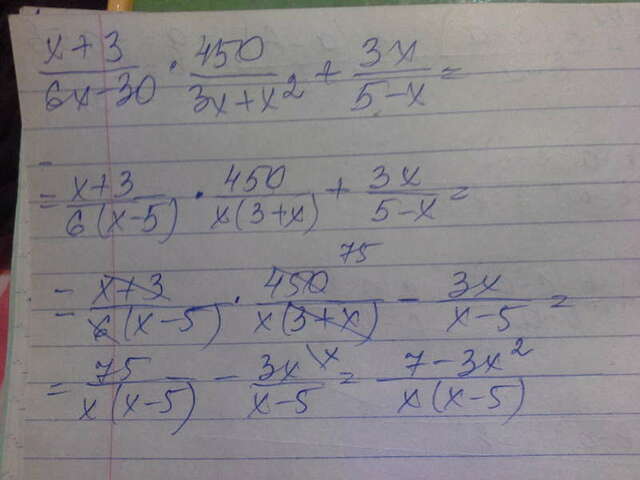 x+3/6x-30 · 450/3x+x² + 3x/5-x =
= x+3/6(x-5) · 450/x(3+x) + 3x/5-x =
= x+3/6(x-5) · 450 75/x(3+x) - 3x/x-5 =
= 75/x(x-5) - 3x \x/x-5 = 7-3x²/x(x-5)